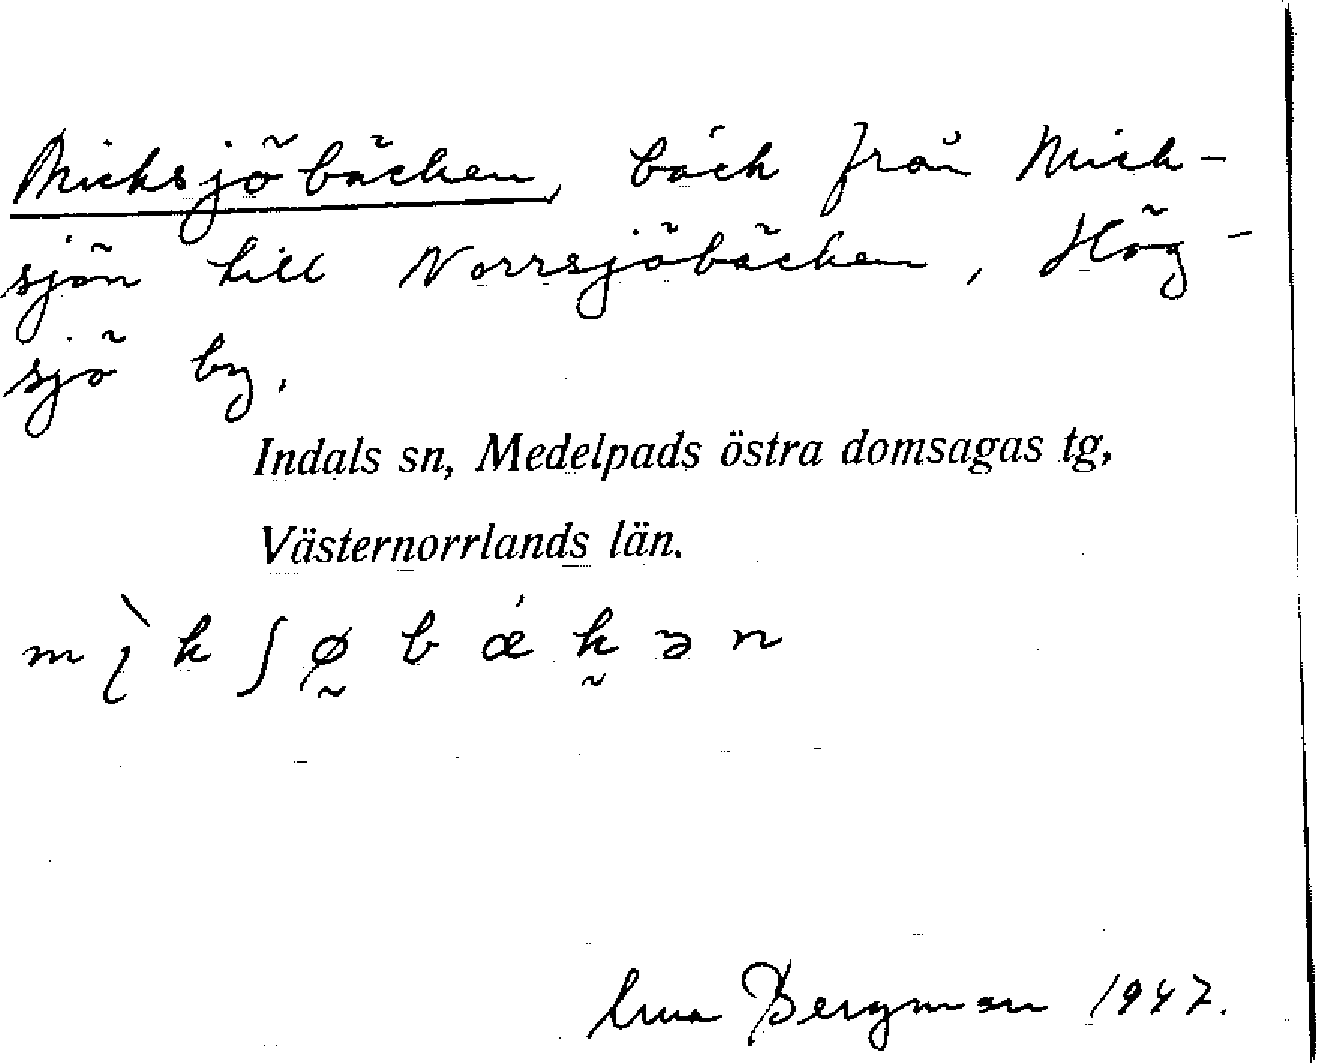 Micksjöbäcken, bäck från Mick-
sjön till Norrsjöbäcken, Hög-
sjö by.
Indals sn, Medelpads östra domsagas tg,
Västernorrlands län.
Bergman 1947.